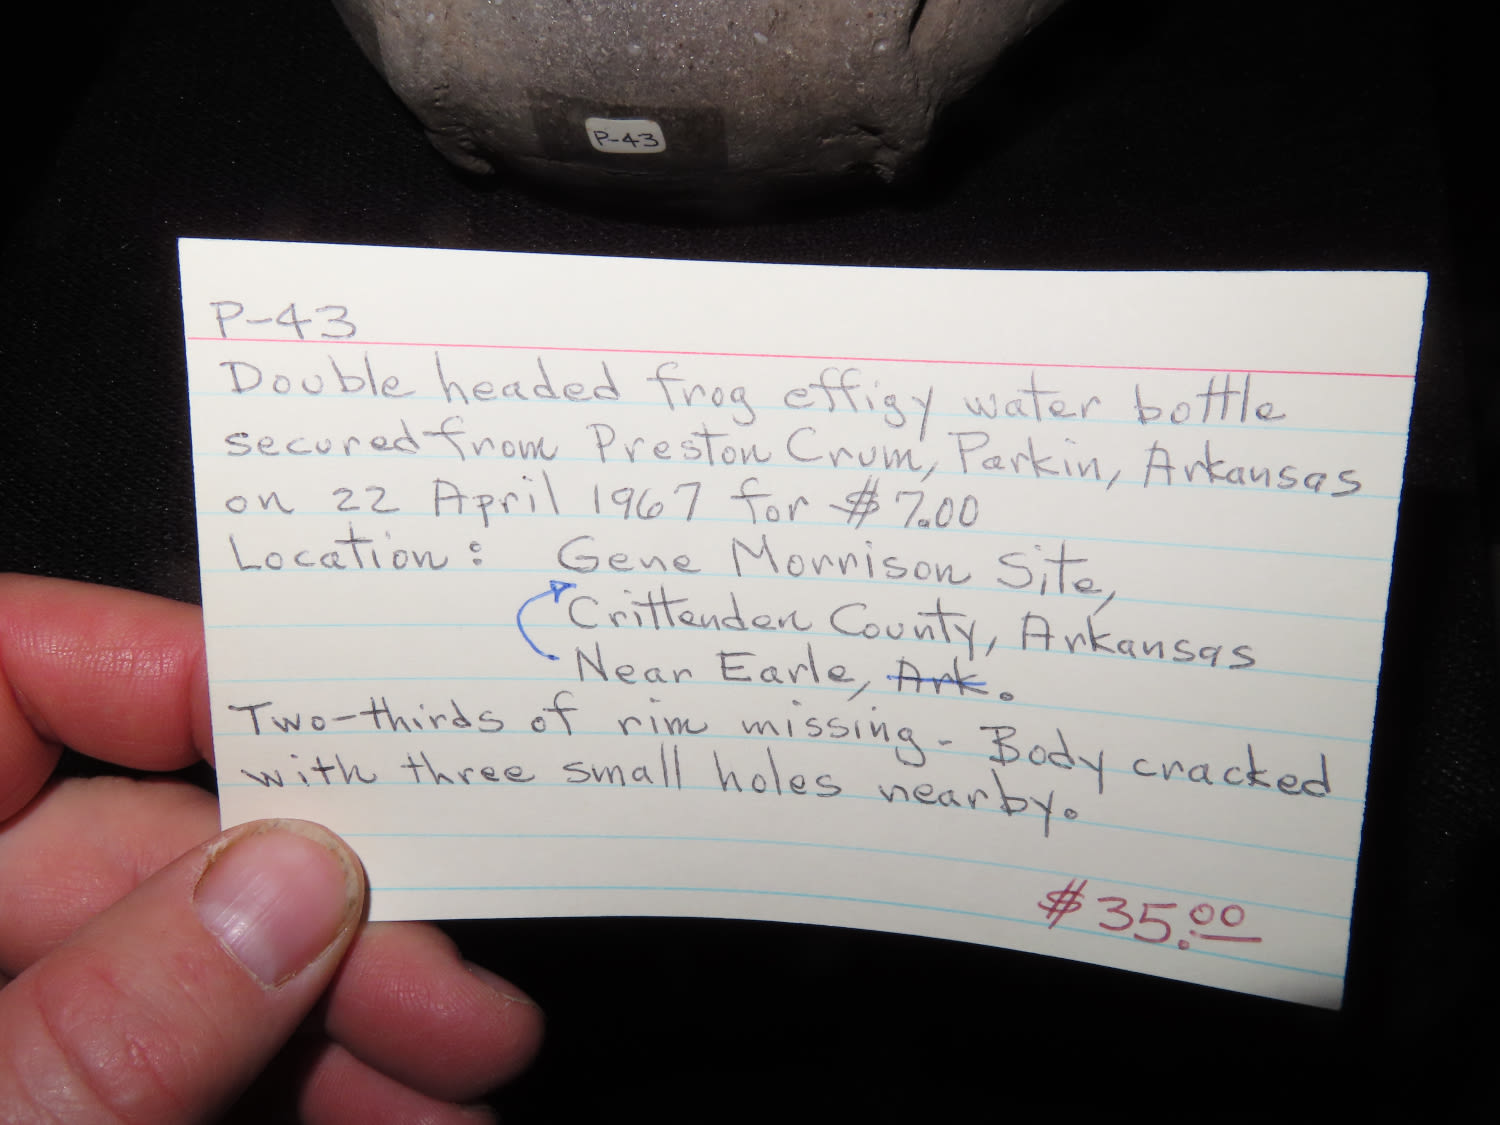 P-43
P-43
Double headed frog effigy water bottle
secured from Preston Crum, Parkin, Arkansas
on 22 April 1967 for $7.00
Location: Gene Morrison Site,
Crittenden County, Arkansas
Near Earle, Ark.
Two-thirds of rim missing - Body cracked
with three small holes nearby.
$35.00